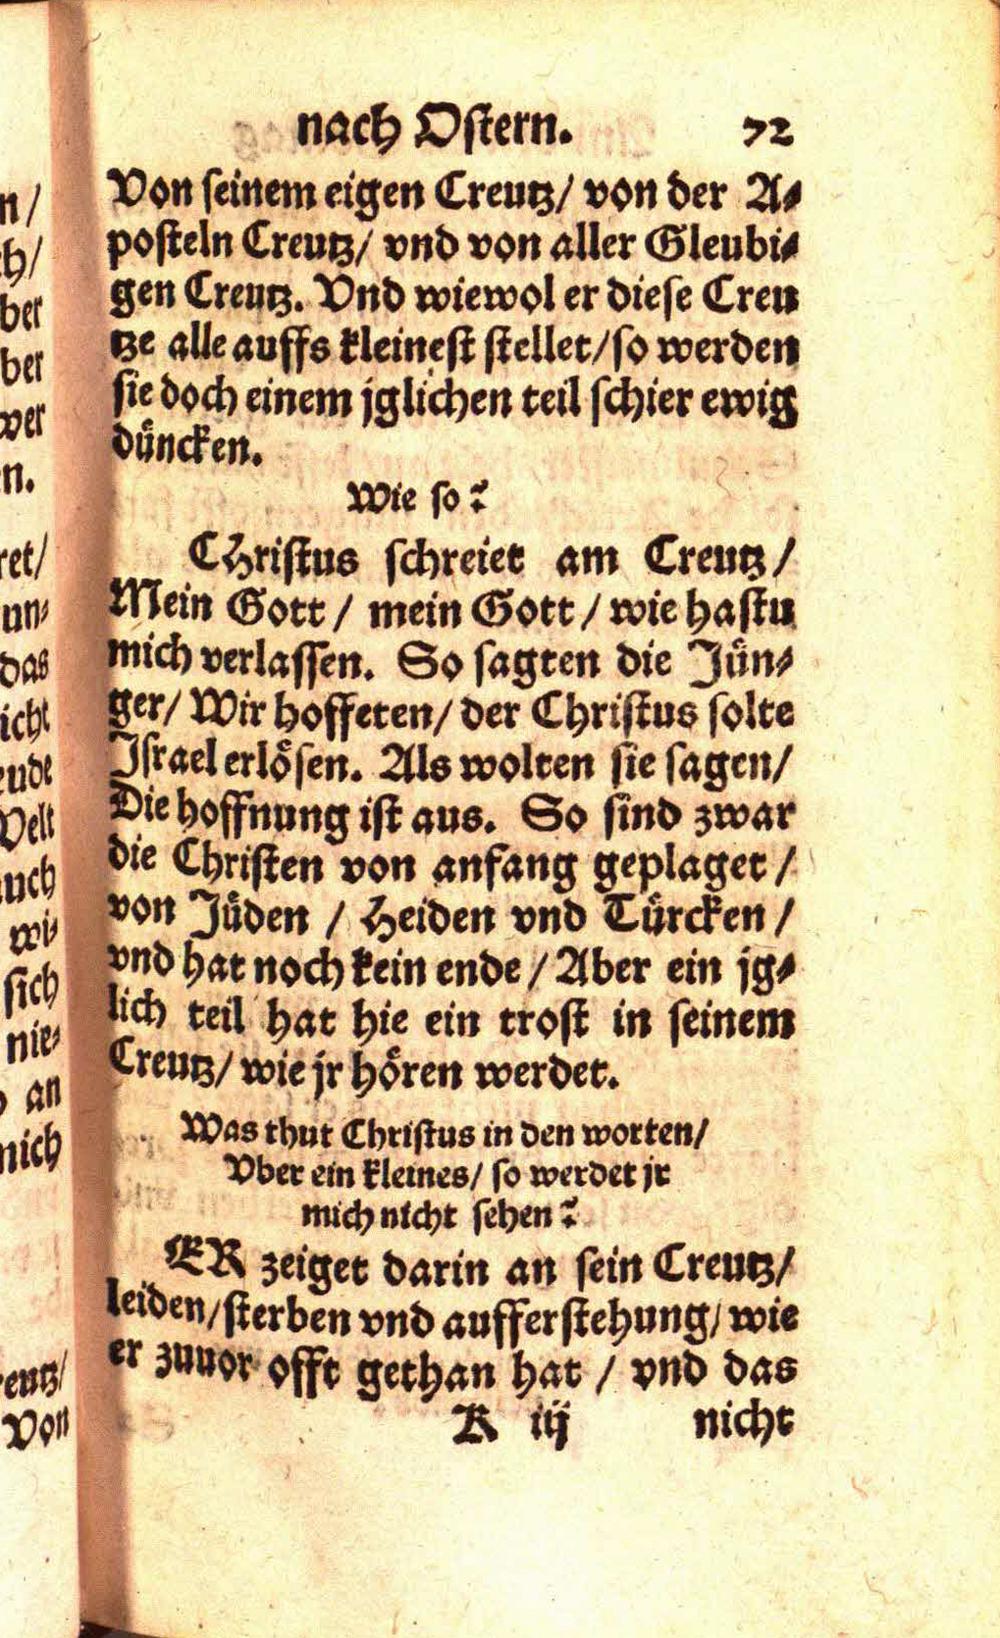 nach Oſtern. 72
Von ſeinem eigen Creutz/ von der A⸗
poſteln Creutz/ vnd von aller Gleubi⸗
gen Creutz. Vnd wiewol er dieſe Creu
tze alle auffs kleineſt ſtellet/ſo werden
ſie doch einem jglichen teil ſchier ewig
duͤncken.
Wie ſo?
CHriſtus ſchreiet am Creutz/
Mein Gott / mein Gott / wie haſtu
mich verlaſſen. So ſagten die Juͤn⸗
ger/ Wir hoffeten/ der Chriſtus ſolte
Iſrael erloͤſen. Als wolten ſie ſagen/
Die hoffnung iſt aus. So ſind zwar
die Chriſten von anfang geplaget /
von Juͤden / Heiden vnd Tuͤrcken /
vnd hat noch kein ende / Aber ein jg⸗
lich teil hat hie ein troſt in ſeinem
Creutz/ wie jr hoͤren werdet.
Was thut Chriſtus in den worten/
Vber ein kleines/ ſo werdet jr
mich nicht ſehen?
ER zeiget darin an ſein Creutz/
leiden/ſterben vnd aufferſtehung/ wie
er zuuor offt gethan hat / vnd das
K iij nicht
n/
ch/
ber
ber
wer
n.
ret/
un⸗
das
icht
eude
Welt
auch
wi⸗
ſich
nie⸗
an
mich
reutz/
Von